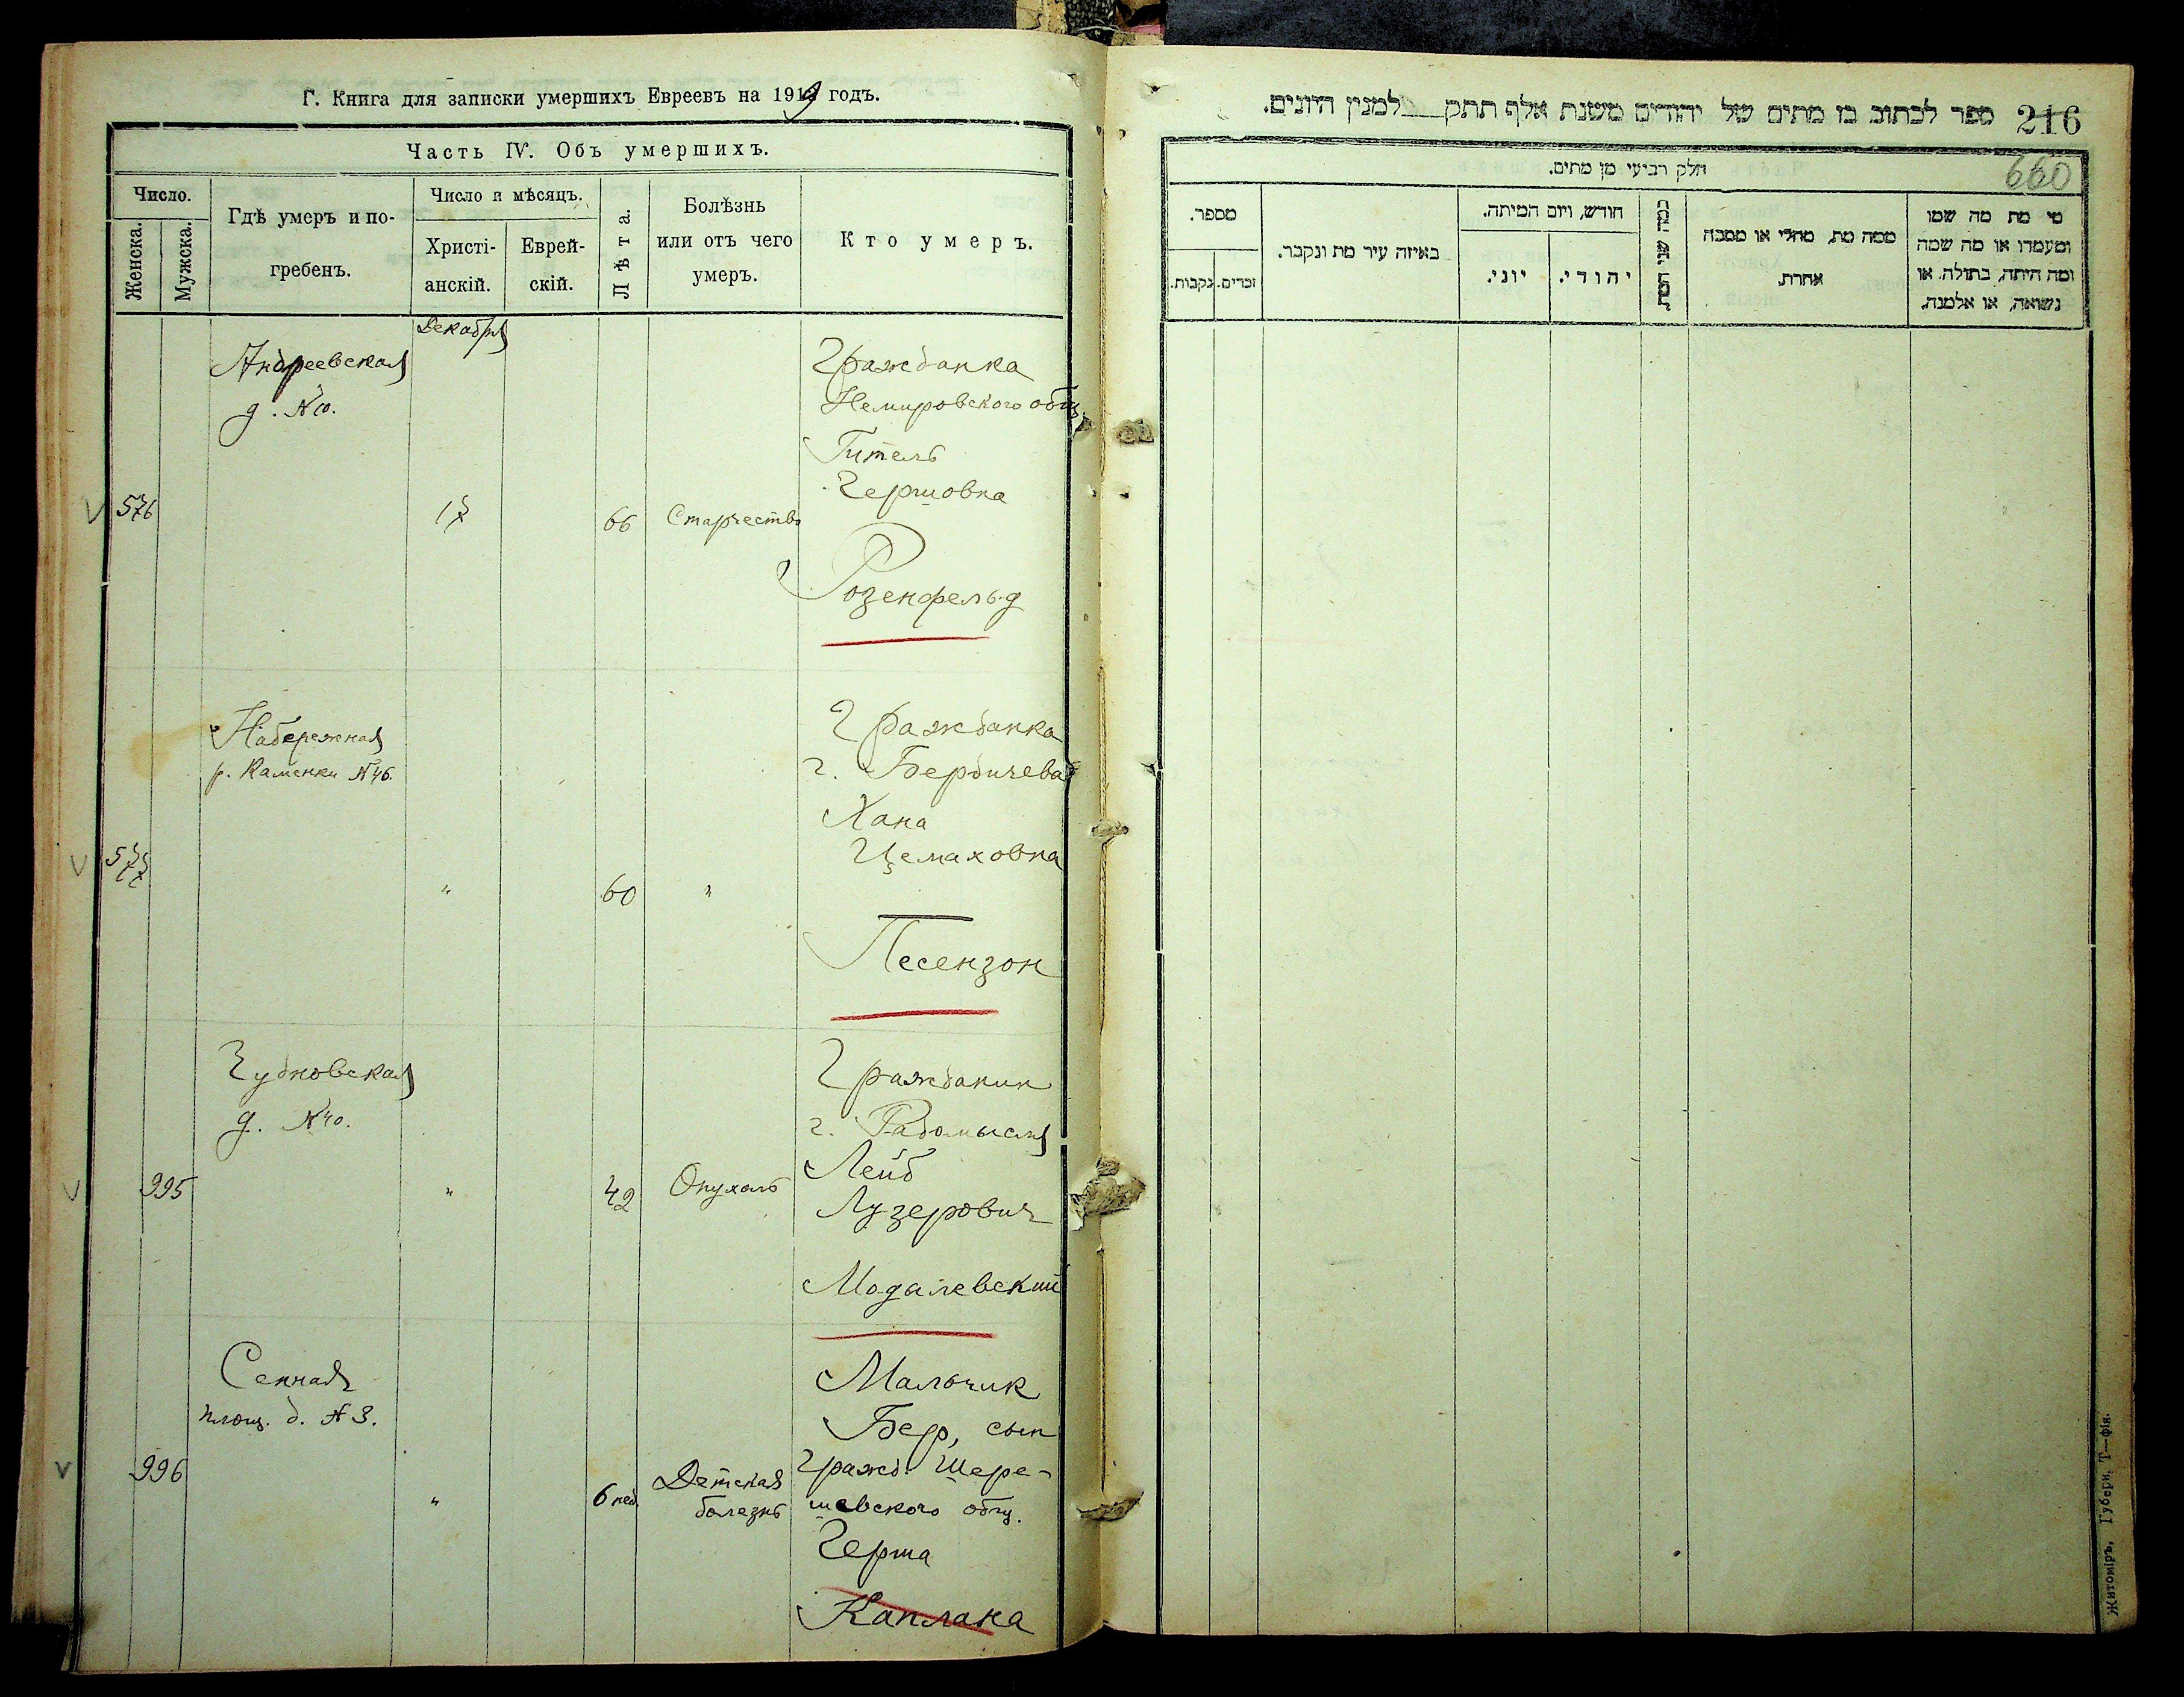 Г. Книга для записки умершихъ Евреевъ на 1919 годъ.
Часть IV. Объ умершихъ.
Число.
Женска.
Мужска.
Гдѣ умеръ и по-
гребенъ.
Число и мѣсяцъ.
Христі-
анскій.
Еврей-
скій.
Лѣта.
Болѣзнь
или отъ чего
умеръ.
Кто умеръ.
Декабря
Андреевская
д. №10.
576
17
66
Старчество
Гражданка
Немировского общ.
Гитель
Гершовна
Розенфельд
Набережная
р. Каменки №46.
577
"
60
"
Гражданка
г. Бердичева
Хана
Цемаховна
Песензон
Чудновская
д. №40.
995
"
42
Опухоль
Гражданин
г. Радомысля
Лейб
Лузерович
Модалевский
Сенная
площ. д. №3.
996
"
6 нед.
Детская
болезнь
Мальчик
Бер, сын
гражд. Шере-
шевского общ.
Герша
Каплана
ספר לכתוב בו מתים של יהודים משנת אלף תתק למנין היונים.
216
660
חלק רביעי מן מתים.
מספר.
זכרים.
נקבות.
באיזה עיר מת ונקבר.
חודש, ויום המיתה.
יוני.
יהודי.
כמה שני המת
ממה מת, מחלי או מסבה
אחרת.
מי מת מה שמו
ומעמדו או מה שמה
ומה היתה, בתולה, או
נשואה, או אלמנה.
Житоміръ, Губерн. Т—фія.